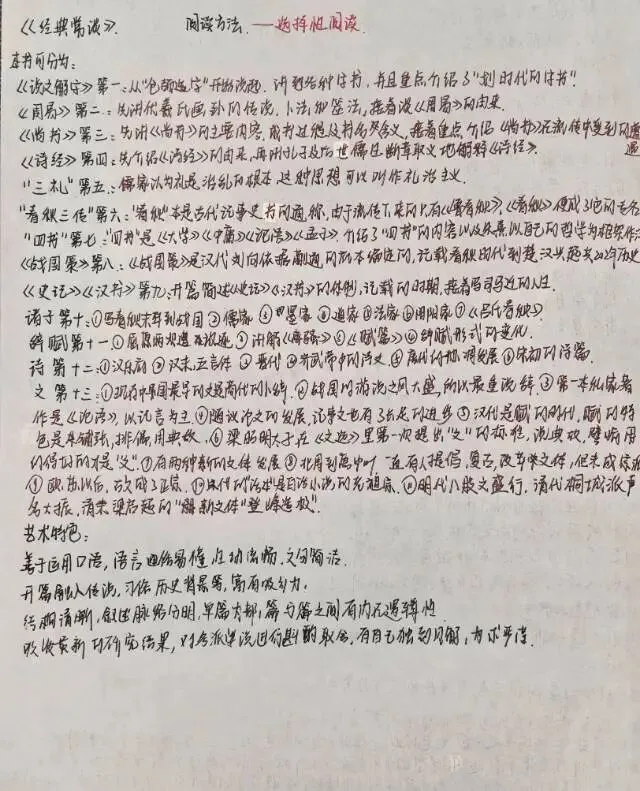 《经典常谈》. 阅读方法. ——选择性阅读.
本书可分为:
《说文解字》第一:从"仓颉造字"开始说起,讲到各种字书,并且重点介绍了"划时代的字书"
《周易》第二:先讲伏羲氏画卦的传说,卜法和筮法,接着说《周易》的由来.
《尚书》第三:先讲《尚书》的主要内容,成书过程及书名含义,接着重点介绍《尚书》在流传中受到的遭遇
《诗经》第四:先介绍《诗经》的由来,再讲孔子及后世儒生断章取义地解释《诗经》.
"三礼"第五:儒家认为礼是治乱的根本,这种思想可以叫作礼治主义.
"春秋三传"第六:"春秋"本是古代记事史书的通称,由于流传下来的只有《鲁春秋》,《春秋》便成了它的专名
"四书"第七:"四书"是《大学》《中庸》《论语》《孟子》,介绍了"四书"的内容以及
《战国策》第八:《战国策》是汉代刘向依据 的 本编定的,记载春秋时代到楚汉兴起 年历史
《史记》《汉书》第九:开篇简述《史记》《汉书》的体例,记载的时期,接着写司马迁的人生.
诸子第十:①写春秋末年到战国②儒家③墨家④道家⑤法家⑥阴阳家⑦《吕氏春秋》
辞赋第十一:①屈原两次遭 ②讲解《离骚》③《赋篇》④辞赋形式的变化.
诗第十二:①汉乐府②汉末,五言体③晋代④ 的诗文⑤唐代的诗 发展⑥宋初的诗篇.
文第十三:①现存中国最早的文是商代的卜辞.②战国时游说之风大盛,所以最重说辞.③第一本私家著
作是《论语》,以记言为主.④随议论文的发展,记事文也有了长足的进步⑤汉代是赋的时代,赋的特
色是铺张,排偶,用典故.⑥梁昭明太子在《文选》里第一次提出"文"的标准,说典故,譬喻用
的得好的才是"文".⑦有两种新的文体发展⑧北周到唐中叶一直有人提倡复古,改革骈文,但未成气候
①欧苏以后,古文成了正宗.⑩宋代的"话本"是白话小说的老祖宗.⑪明代八股文盛行,清代桐城派声
名大振,清末梁启超的"新文体"登峰造极".
艺术特色:
善于运用口语,语言通俗易懂,生动流畅,文句简洁.
开篇融入传说,习俗,历史背景等,富有吸引力.
结构清晰,叙述脉络分明,单篇内部,篇与篇之间有内在逻辑性.
吸收最新的研究结果,对各派学说进行斟酌取舍,有自己独到见解,力求平淡.